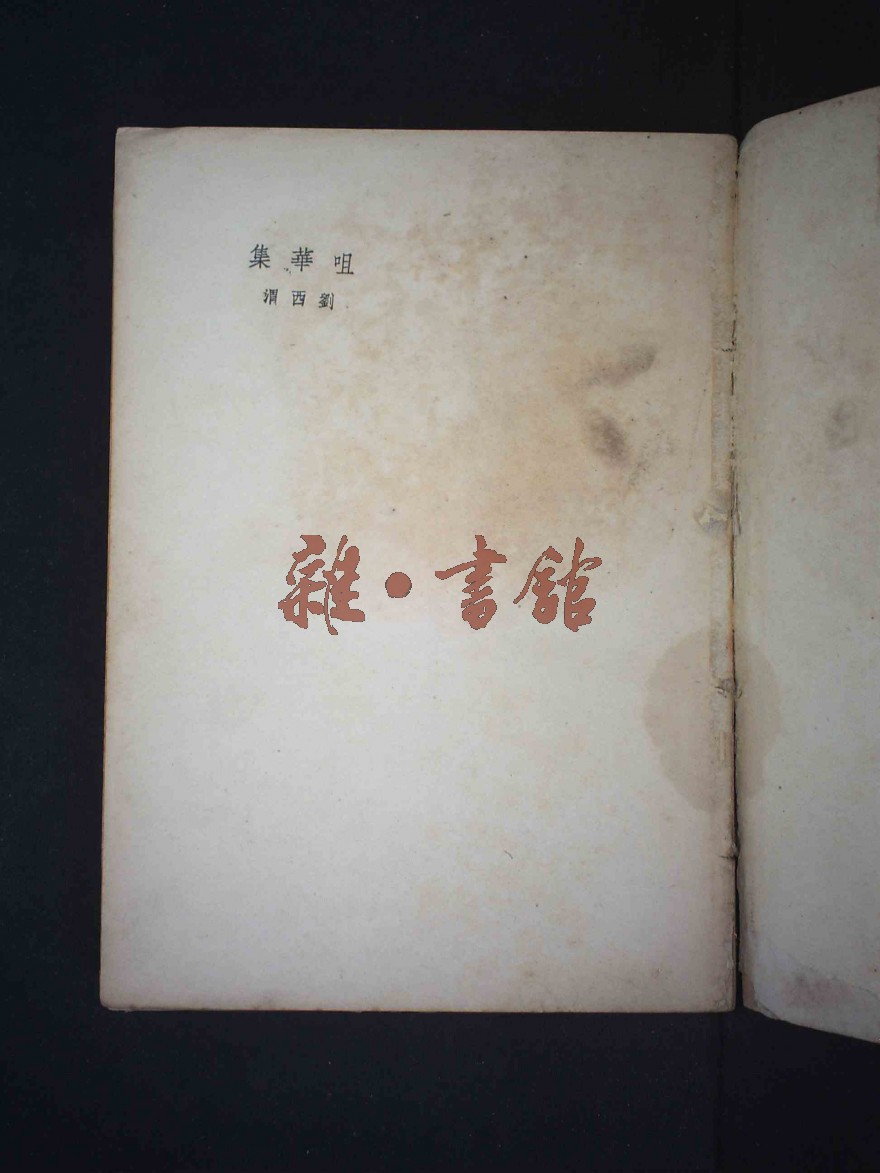 咀華集
劉西渭
雜·書館